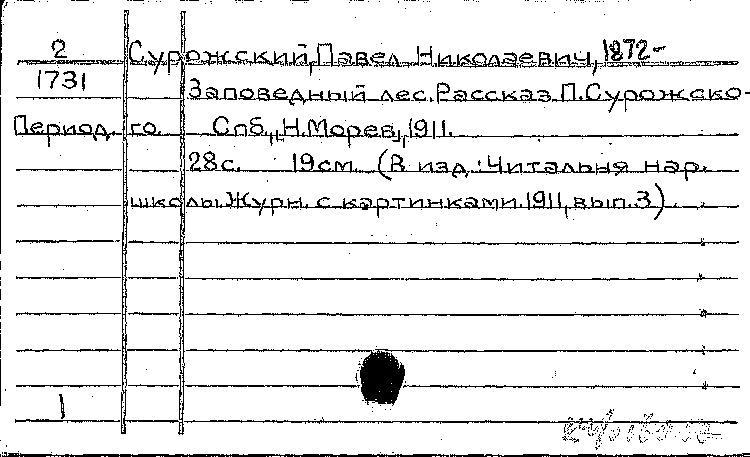 2 Сурожский, Павел Николаевич, 1872-
1731 Заповедный лес. Рассказ П. Сурожско-
Период. го. Спб., Н. Морев, 1911.
28с. 19см. (В изд.: Читальня нар.
школы. Журн. с картинками. 1911, вып. 3).
1